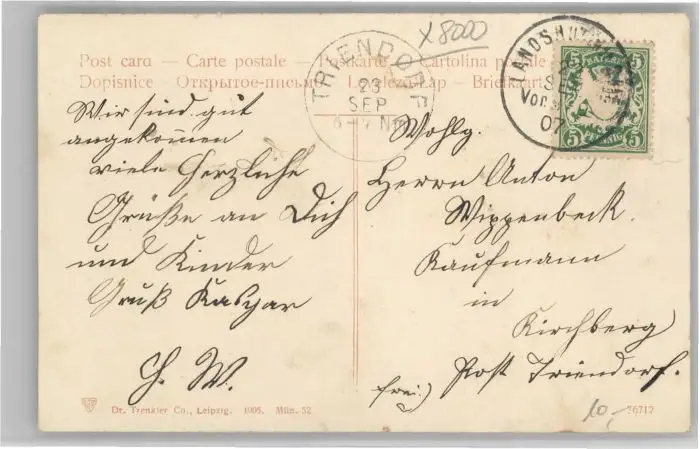 X 8000
Post card — Carte postale — Postkarte — Cartolina postale
Dopisnice — Открытое письмо — Levelező-Lap — Briefkaart
TRIENDORF
23
SEP
LANDSHUT
Vor
07
BAYERN
5 5
PFENNIG
Wir sind gut
angekommen
viele herzliche
Grüße an Dich
und Kinder
Gruß Kaspar
Wohlg.
Herrn Anton
Wippenbeck.
Kaufmann
in
Kirchberg
frei) Post Triendorf.
Dr. Trenkler Co., Leipzig. 1905. Mün. 52
10,-
36712